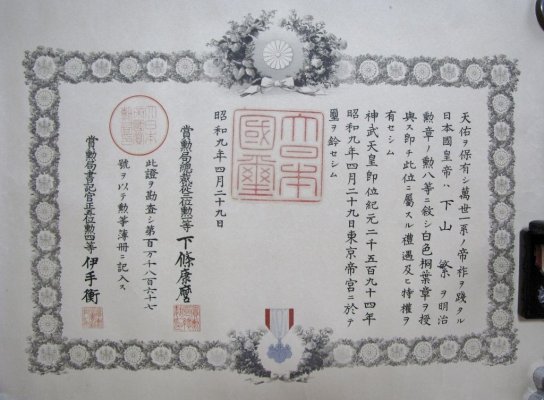 天佑ヲ保有シ萬世一系ノ帝祚ヲ踐タル
日本國皇帝ハ下山 繁ヲ明治
勲章ノ勲八等ニ敘シ白色桐葉章ヲ授
與ス即チ此位ニ屬スル禮遇及ヒ特權ヲ
有セシム
神武天皇即位紀元二千五百九十四年
昭和九年四月二十九日東京帝宮ニ於テ
璽ヲ鈐セシム
大日本國璽
昭和九年四月二十九日
賞勲局總裁從三位勲二等下條康麿
此證ヲ勘査シ第百万十八百六十七
號ヲ以テ勲等簿冊ニ記入ス
賞勲局書記官正五位勲四等伊手衡